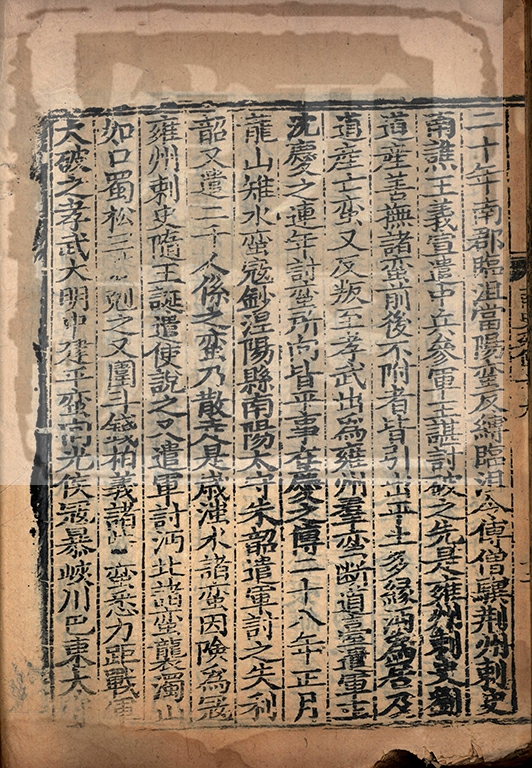 二十年南郡臨沮當陽蛮反縛臨沮令傅僧驥荆州刺史
南譙王義宣遣中兵參軍王諶討破之先是雍州刺史劉
道産善撫諸蛮前後不附者皆引出平土多緣沔爲居及
道産亡蛮又反叛至孝武出爲雍州羣蛮断道臺遣軍主
沈慶之連年討蛮所向皆平事在慶之傳二十八年正月
龍山雉水蛮寇鈔涅陽縣南陽太守朱韶遣軍討之失利
韶又遣二千人係之蛮乃散走是歲滍水諸蛮因險爲寇
雍州刺史隨王誕遣使說之又遣軍討沔北諸蛮襲濁山
如口蜀松三剋之又圍斗錢柏義諸蛮悉力距戰軍
大破之孝武大明中建平蛮向光侯寇暴峽川巴東太